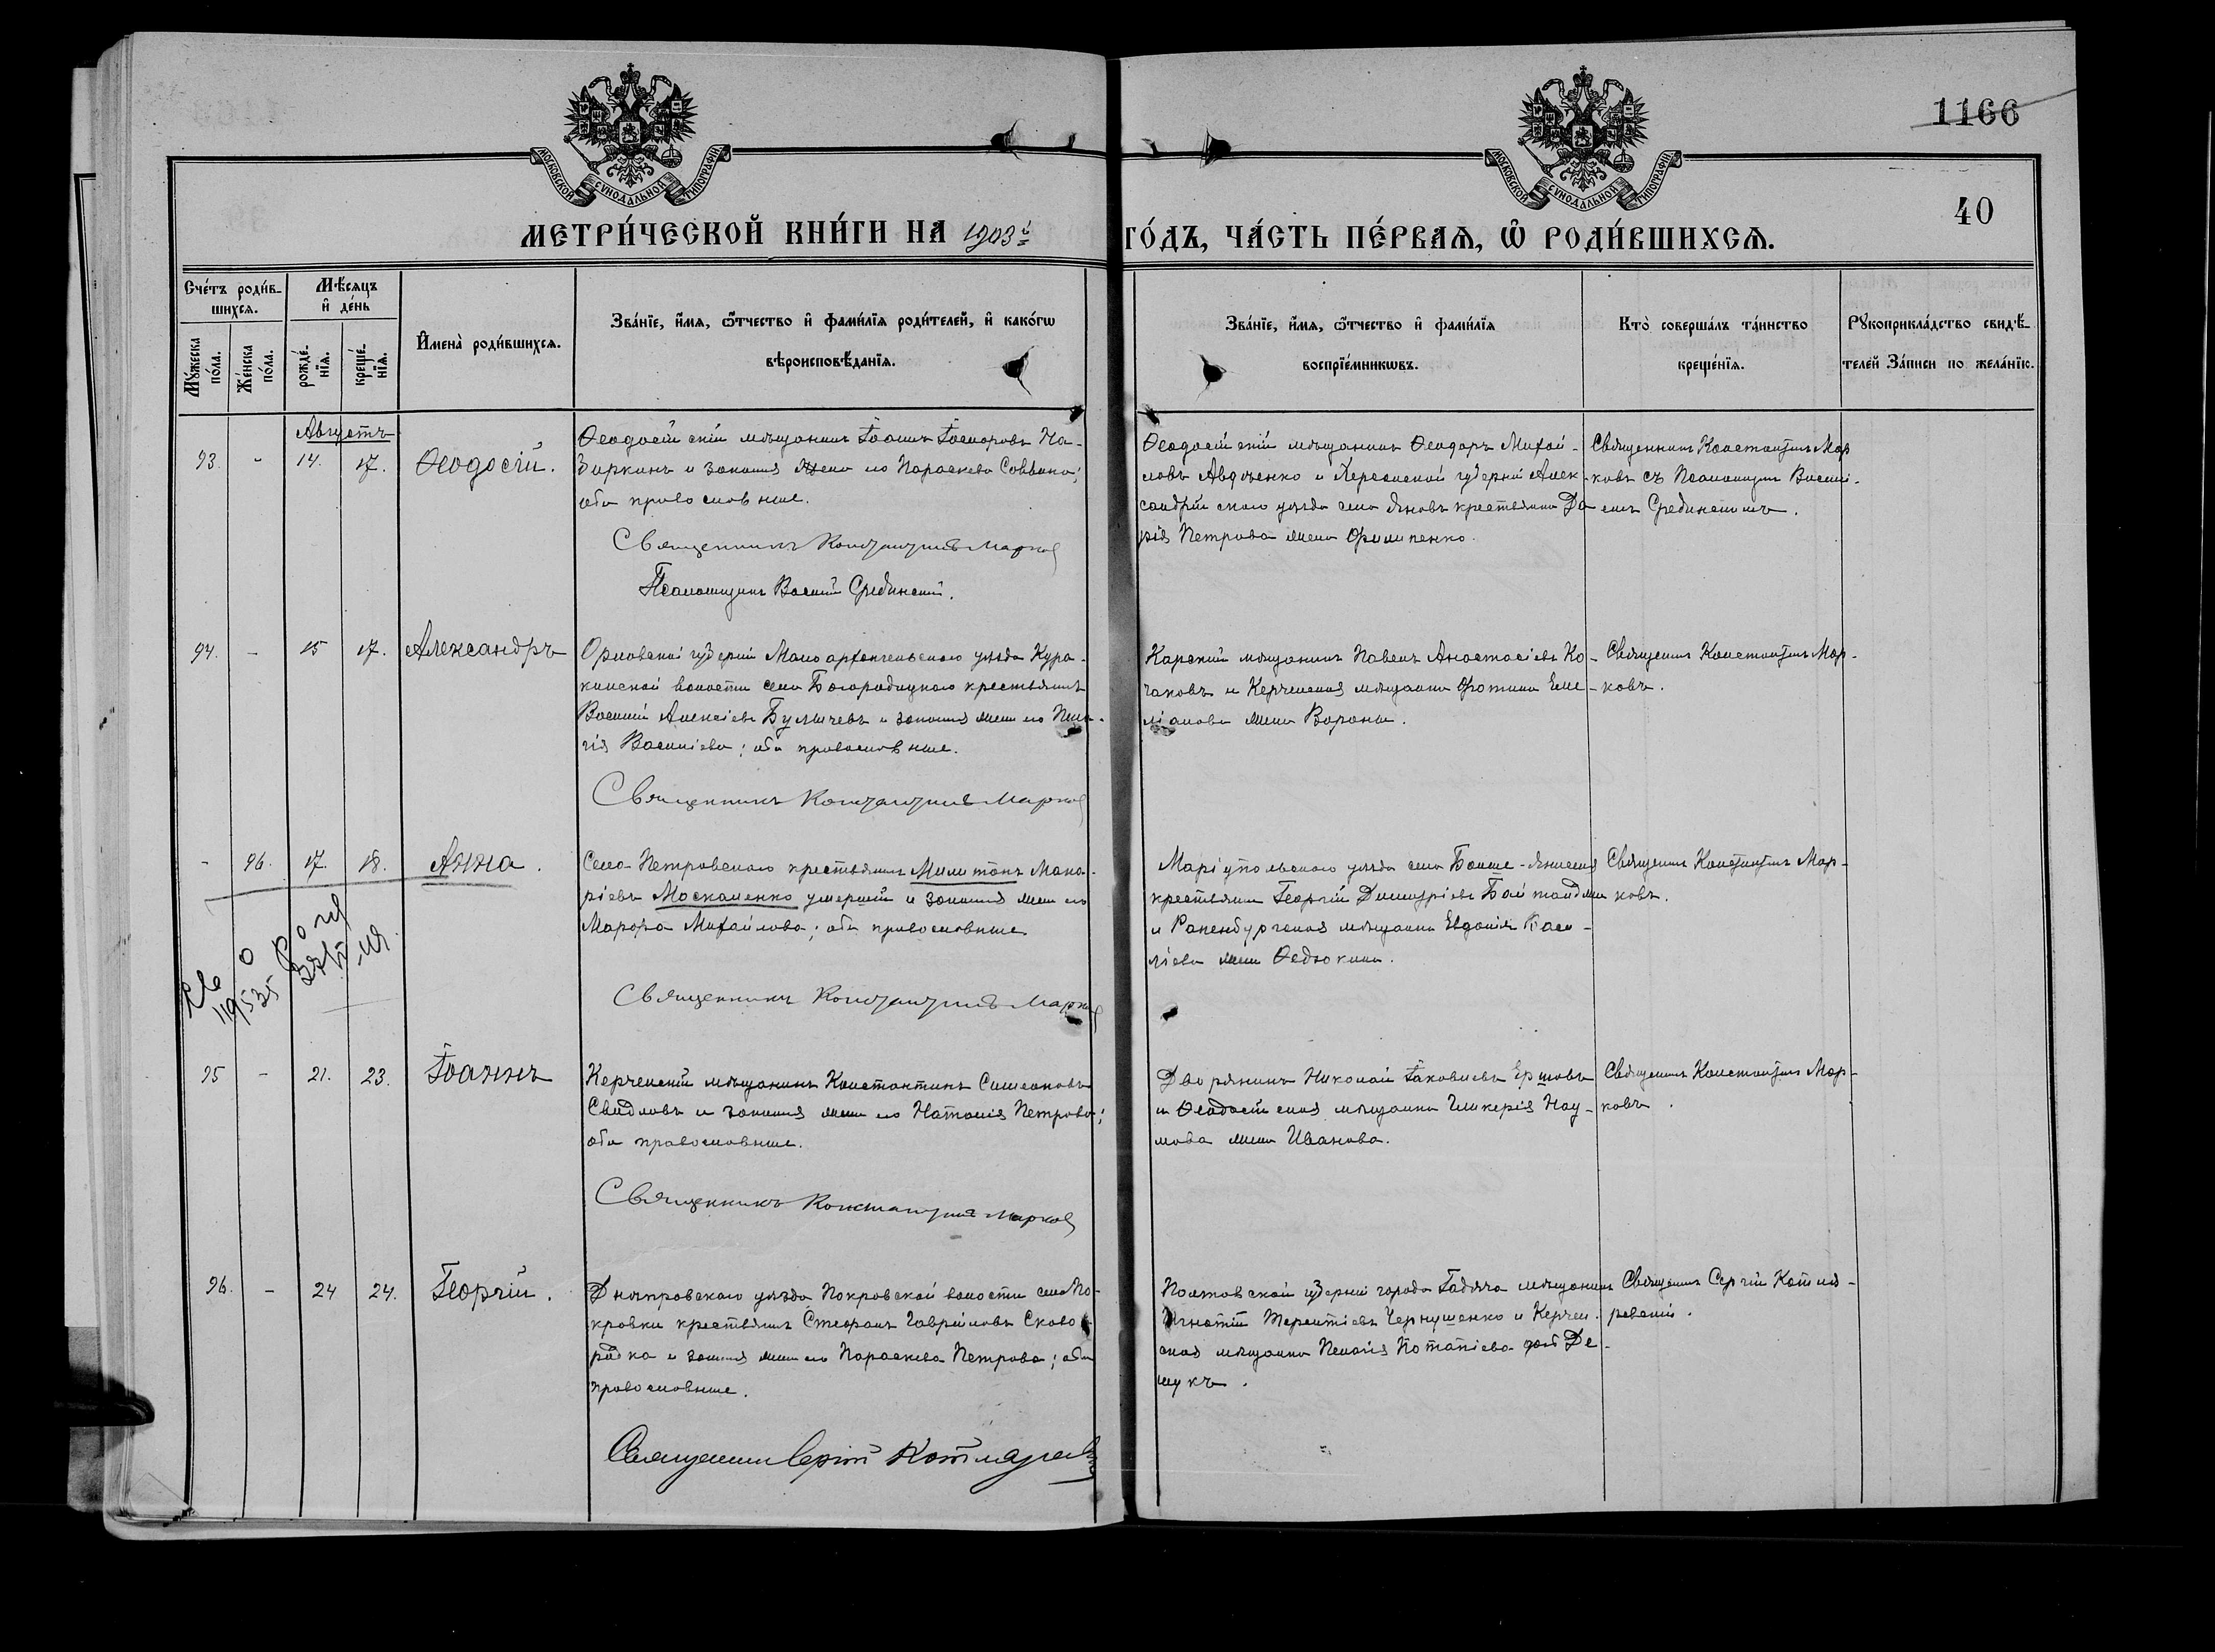 1166
40
МОСКОВСКОЙ СѴНОДАЛЬНОЙ ТИПОГРАФІИ
МОСКОВСКОЙ СѴНОДАЛЬНОЙ ТИПОГРАФІИ
МЕТРИ́ЧЕСКОЙ КНИ́ГИ НА 1903й ГО́ДЪ, ЧА́СТЬ ПЕ́РВАѦ, Ѽ РОДИ́ВШИХСѦ.
Сче́тъ роди́в-
шихсѧ.
Мꙋ́жеска по́ла.
Же́нска по́ла.
Мѣ́сяцъ
и҆ де́нь
рожде́-
нїѧ.
креще́-
нїѧ.
И҆мена̀ роди́вшихсѧ.
Зва́нїе, и҆́мѧ, ѻ҆́тчество и҆ фами́лїѧ роди́телей, и҆ како́гѡ
вѣроисповѣ́данїѧ.
Зва́нїе, и҆́мѧ, ѻ҆́тчество и҆ фами́лїѧ
воспрїе́мникѡвъ.
Кто̀ соверша́лъ та́инство
креще́нїѧ.
Рꙋкоприкла́дство свидѣ́-
телей За́писи по жела́нїю.
Августъ
93. - 14. 17. Ѳеодосій.
Ѳеодосійскій мѣщанинъ Іоаннъ Іосифовъ На-
зиркинъ и законная жена его Параскева Саввина;
оба православные.
Священникъ Константинъ Марков
Псаломщикъ Василій Срединскій.
Ѳеодосійскій мѣщанинъ Ѳеодоръ Михай-
ловъ Авдѣенко и Херсонской губерніи Алек-
сандрійскаго уѣзда села крестьянка Да
рія Петрова жена Филипенко.
Священникъ Константинъ Мар
ковъ съ Псаломщик. Васили-
емъ Срединскимъ.
94. - 15 17. Александръ
Орловской губерніи Малоархангельскаго уѣзда Кура-
кинской волости села Богородицкаго крестьянинъ
Василій Алексіевъ Булычевъ и законная жена его Пела-
гія Василіева; оба православные.
Священникъ Константинъ Марков
Карскій мѣщанинъ Павелъ Анастасіевъ Ко-
чаковъ и Керченская мѣщанка Фотина Еме-
ліанова жена Вороны.
Священникъ Константинъ Мар-
ковъ.
- 96. 17. 18. Анна.
Села Петровскаго крестьянинъ Милитонъ Мака-
ріевъ Москаленко умершій и законная жена его
Марфа Михайлова; оба православные.
Священникъ Константинъ Марков
Маріупольскаго уѣзда села Больше-Янисаля
крестьянинъ Георгій Димитріевъ
и Раненбургская мѣщанка Евдокія Васи-
ліева жена Федюкина.
Священникъ Константинъ Мар-
ковъ.
119535
95 - 21. 23. Іоаннъ
Керченскій мѣщанинъ Константинъ Симеоновъ
Свидловъ и законная жена его Наталія Петрова;
оба православные.
Священникъ Константинъ Марков
Дворянинъ Николай Іаковлевъ Ершовъ
и Ѳеодосійская мѣщанка Гликерія Нау-
мова жена Иванова.
Священникъ Константинъ Мар-
ковъ.
96. - 24 24. Георгій.
Днѣпровскаго уѣзда Покровской волости села По-
кровки крестьянинъ Стефанъ Гавріиловъ Сково-
родка и законная жена его Параскева Петрова; оба
православные.
Священникъ Сергій Котляревскій
Полтавской губерніи города Гадяча мѣщанинъ
Игнатій Терентіевъ Чернушенко и Керчен-
ская мѣщанка Пелагія Потапіева дочь Де-
щукъ.
Священникъ Сергій Котля-
ревскій.